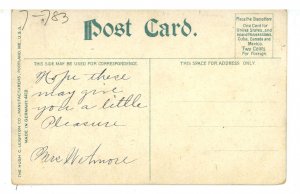 7-/83
Post Card.
Place the Stamp Here
One Cent for
United States and
Island Possessions,
Cuba, Canada and
Mexico.
Two Cents
For Foreign.
THIS SIDE MAY BE USED FOR CORRESPONDENCE.
THIS SPACE FOR ADDRESS ONLY.
Hope these
may give
you a little
Pleasure
Mrs Wetmore
THE HUGH C. LEIGHTON CO., MANUFACTURERS, PORTLAND, ME., U.S.A.
MADE IN GERMANY.